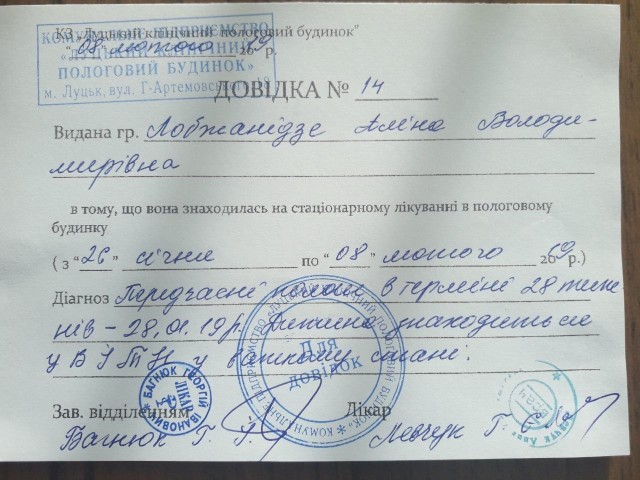 КЗ „Луцький клінічний пологовий будинок"
КОМУНАЛЬНЕ ПІДПРИЄМСТВО
"08" лютого 2019 р.
«ЛУЦЬКИЙ КЛІНІЧНИЙ
ПОЛОГОВИЙ БУДИНОК»
м. Луцьк, вул. Г-Артемовського, 18
ДОВІДКА № 14
Видана гр. Лобжанідзе Аліна Володи-
мирівна
в тому, що вона знаходилась на стаціонарному лікуванні в пологовому
будинку
( з "26" січня по "08" лютого 2019 р.)
Діагноз Передчасні пологи в терміні 28 тиж
нів – 28.01.19р. Дитина знаходиться
у ВІТН у важкому стані.
КОМУНАЛЬНЕ ПІДПРИЄМСТВО «ЛУЦЬКИЙ КЛІНІЧНИЙ ПОЛОГОВИЙ БУДИНОК»
Для
довідок
БАГНЮК ГЕОРГІЙ ІВАНОВИЧ
ЛІКАР
Зав. відділенням Лікар
Багнюк Г. І. Левчук Г.